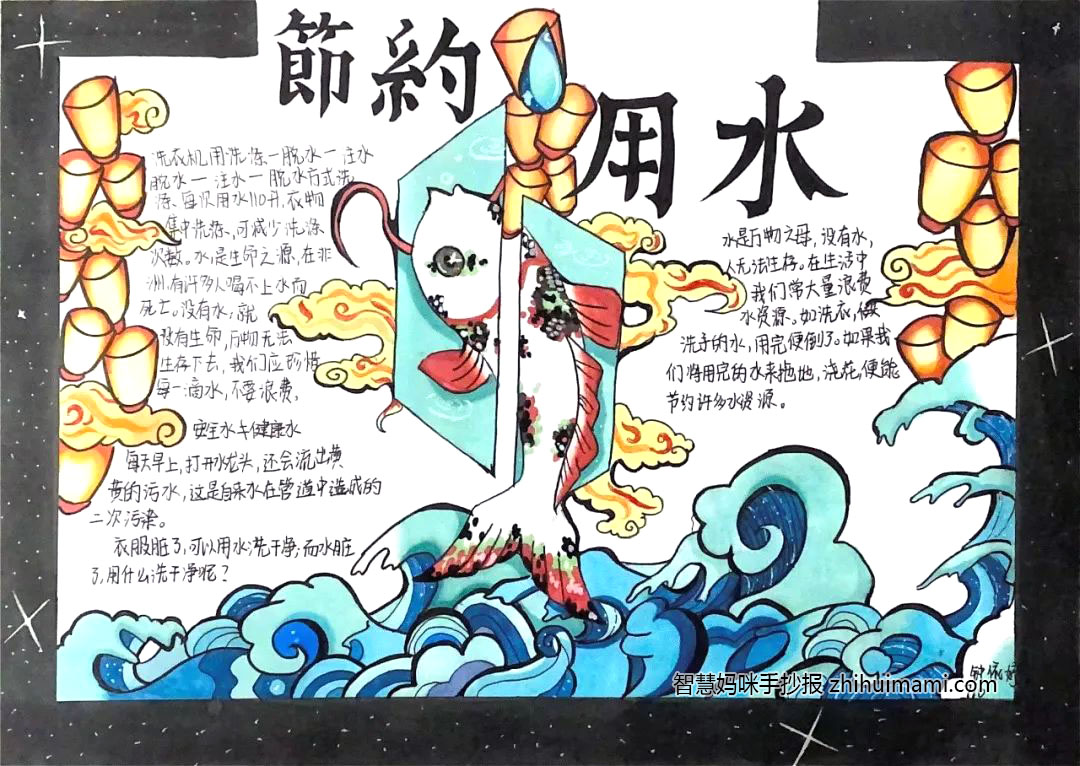 節約
用水
洗衣机用洗涤一脱水一注水
脱水一注水一脱水方式洗
涤、每次用水110升,衣物
集中洗涤,可减少洗涤
次数。水是生命之源,在非
洲,有许多人喝不上水而
死亡。没有水,就
没有生命,万物无法
生存下去,我们应珍惜
每一滴水,不要浪费,
安全水≠健康水
每天早上,打开水龙头,还会流出黄
黄的污水,这是自来水在管道中造成的
二次污染。
衣服脏了,可以用水洗干净;而水脏
了,用什么洗干净呢?
水是万物之母,没有水,
人无法生存。在生活中
我们常大量浪费
水资源。如洗衣,做
洗手的水,用完便倒了。如果我
们将用完的水来拖地,浇花,便能
节约许多水资源。
智慧妈咪手抄报 zhihuimami.com